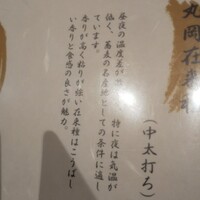 丸岡在来
(中太打ち)
昼夜の温度差が
特に夜は気温が
低く、蕎麦の名産地としての条件に適し
ています。
香りが高く粘りが強い在来種はこうばし
い香りと食感の良さが魅力。